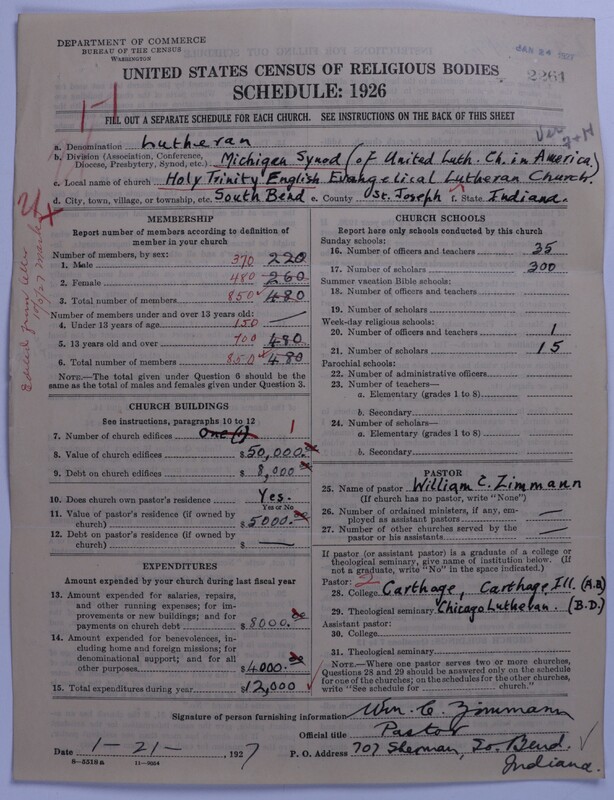 DEPARTMENT OF COMMERCE
BUREAU OF THE CENSUS
WASHINGTON
JAN 24 1927
UNITED STATES CENSUS OF RELIGIOUS BODIES
2261
SCHEDULE: 1926
FILL OUT A SEPARATE SCHEDULE FOR EACH CHURCH. SEE INSTRUCTIONS ON THE BACK OF THIS SHEET
a. Denomination Lutheran
b. Division (Association, Conference, Diocese, Presbytery, Synod, etc.) Michigan Synod (of United Luth. Ch. in America)
c. Local name of church Holy Trinity English Evangelical Lutheran Church.
d. City, town, village, or township, etc. South Bend e. County St. Joseph f. State Indiana.
MEMBERSHIP
Report number of members according to definition of member in your church
Number of members, by sex:
1. Male 370 220
2. Female 480 260
3. Total number of members 850 480
Number of members under and over 13 years old:
4. Under 13 years of age 150 —
5. 13 years old and over 700 480
6. Total number of members 850 480
NOTE.—The total given under Question 6 should be the same as the total of males and females given under Question 3.
CHURCH BUILDINGS
See instructions, paragraphs 10 to 12
7. Number of church edifices One (1) 1
8. Value of church edifices $50,000.00
9. Debt on church edifices $8,000 00
10. Does church own pastor's residence Yes.
Yes or No
11. Value of pastor's residence (if owned by church) $5000.00
12. Debt on pastor's residence (if owned by church) $ —
EXPENDITURES
Amount expended by your church during last fiscal year
13. Amount expended for salaries, repairs, and other running expenses; for improvements or new buildings; and for payments on church debt $8000.00
14. Amount expended for benevolences, including home and foreign missions; for denominational support; and for all other purposes $4000.00
15. Total expenditures during year $12,000
CHURCH SCHOOLS
Report here only schools conducted by this church
Sunday schools:
16. Number of officers and teachers 35
17. Number of scholars 300
Summer vacation Bible schools:
18. Number of officers and teachers
19. Number of scholars
Week-day religious schools:
20. Number of officers and teachers 1
21. Number of scholars 15
Parochial schools:
22. Number of administrative officers
23. Number of teachers—
a. Elementary (grades 1 to 8)
b. Secondary
24. Number of scholars—
a. Elementary (grades 1 to 8)
b. Secondary
PASTOR
25. Name of pastor William C. Zimmann
(If church has no pastor, write "None")
26. Number of ordained ministers, if any, employed as assistant pastors —
27. Number of other churches served by the pastor or his assistants —
If pastor (or assistant pastor) is a graduate of a college or theological seminary, give name of institution below. (If not a graduate, write "No" in the space indicated.)
Pastor: 2
28. College Carthage, Carthage Ill. (A.B)
29. Theological seminary Chicago Lutheran. (B.D.)
Assistant pastor:
30. College
31. Theological seminary
NOTE.—Where one pastor serves two or more churches, Questions 28 and 29 should be answered only on the schedule for one of the churches; on the schedules for the other churches, write "See schedule for church."
Signature of person furnishing information Wm. C. Zimmann
Official title Pastor
Date 1-21- 1927
P. O. Address 707 Sherman, So. Bend. Indiana.
8-5518a 11-9024